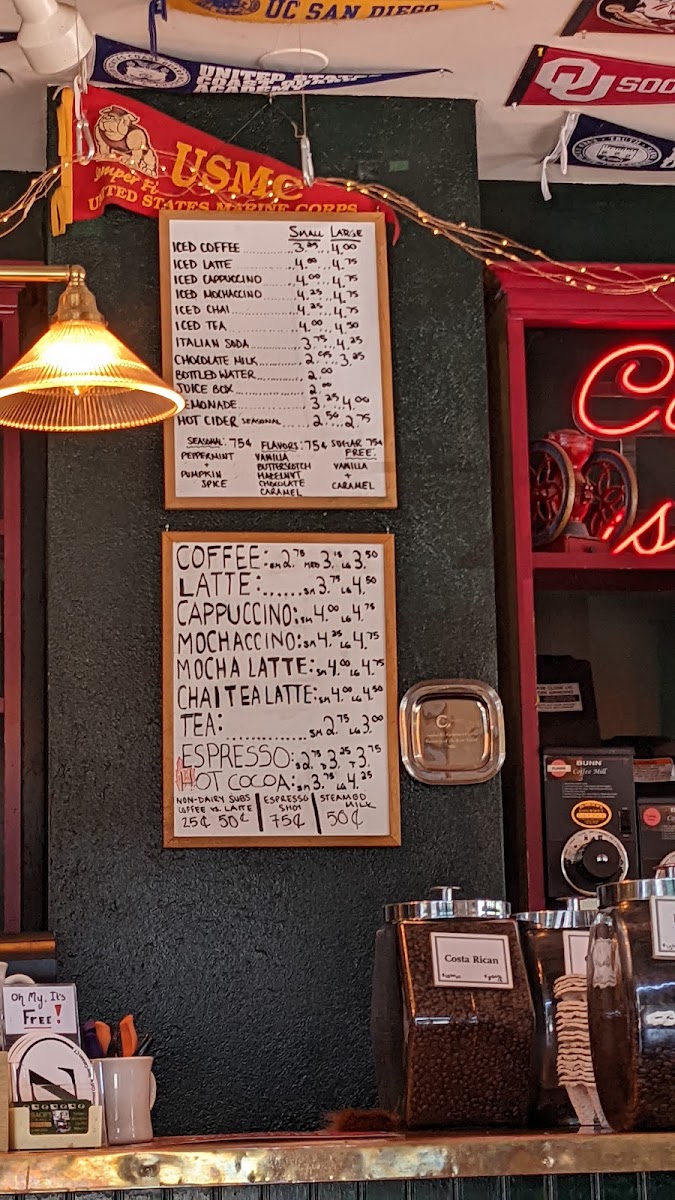 UC SAN DIEGO
UNITED STATES
COAST GUARD
ACADEMY
OU SOO
USMC
Semper Fi
UNITED STATES MARINE CORPS
SMALL LARGE
ICED COFFEE 3.25 4.00
ICED LATTE 4.00 4.75
ICED CAPPUCCINO 4.00 4.75
ICED MOCHACCINO 4.25 4.75
ICED CHAI 4.25 4.75
ICED TEA 4.00 4.50
ITALIAN SODA 3.75 4.25
CHOCOLATE MILK 2.95 3.25
BOTTLED WATER 2.00
JUICE BOX 2.00
LEMONADE 3.25 4.00
HOT CIDER SEASONAL 2.50 2.75
SEASONAL: 75¢ FLAVORS: 75¢ SUGAR 75¢
FREE:
PEPPERMINT VANILLA VANILLA
+ BUTTERSCOTCH +
PUMPKIN HAZELNUT CARAMEL
SPICE CHOCOLATE
CARAMEL
COFFEE: SM 2.75 MED 3.15 LG 3.50
LATTE: SM 3.75 LG 4.50
CAPPUCCINO: SM 4.00 LG 4.75
MOCHACCINO: SM 4.25 LG 4.75
MOCHA LATTE: SM 4.00 LG 4.75
CHAI TEA LATTE: SM 4.00 LG 4.50
TEA: SM 2.75 LG 3.00
ESPRESSO: S 2.75 D 3.25 T 3.75
HOT COCOA: SM 3.75 LG 4.25
NON-DAIRY SUBS ESPRESSO STEAMED
COFFEE vs. LATTE SHOT MILK
25¢ 50¢ 75¢ 50¢
BUNN
Coffee Mill
Costa Rican
Oh My, It's
FREE!
N